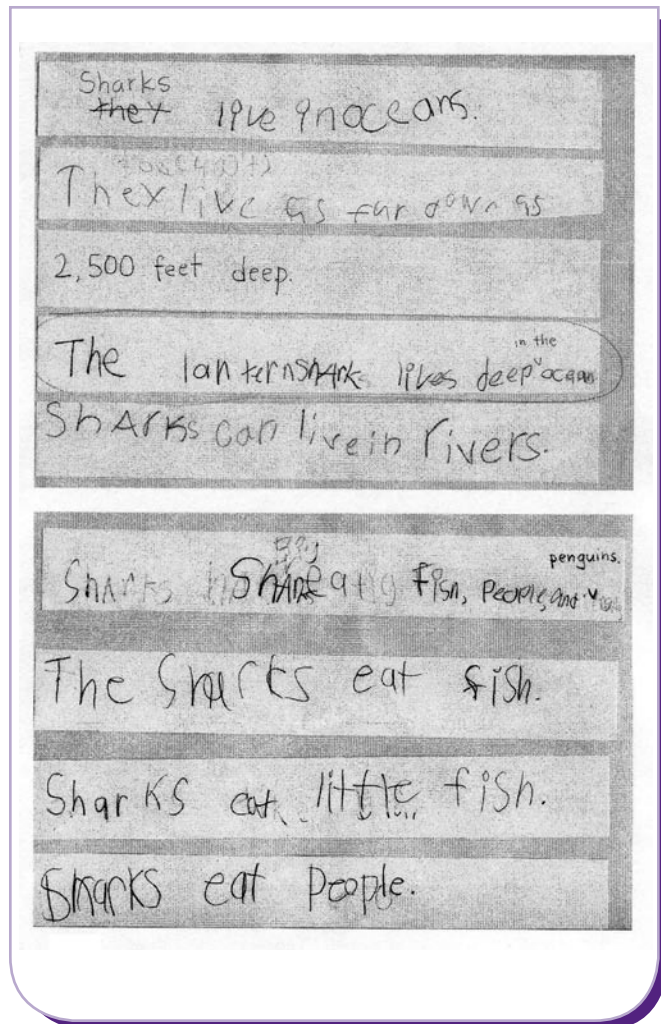 Sharks
they live in oceans.
They live as far down as
2,500 feet deep.
in the
The lantern sharks lives deep ˅ ocean
Sharks can live in rivers.
penguins.
Sharks Shark eat Fish, People, and ˅
The Sharks eat fish.
Sharks eat little fish.
Sharks eat People.